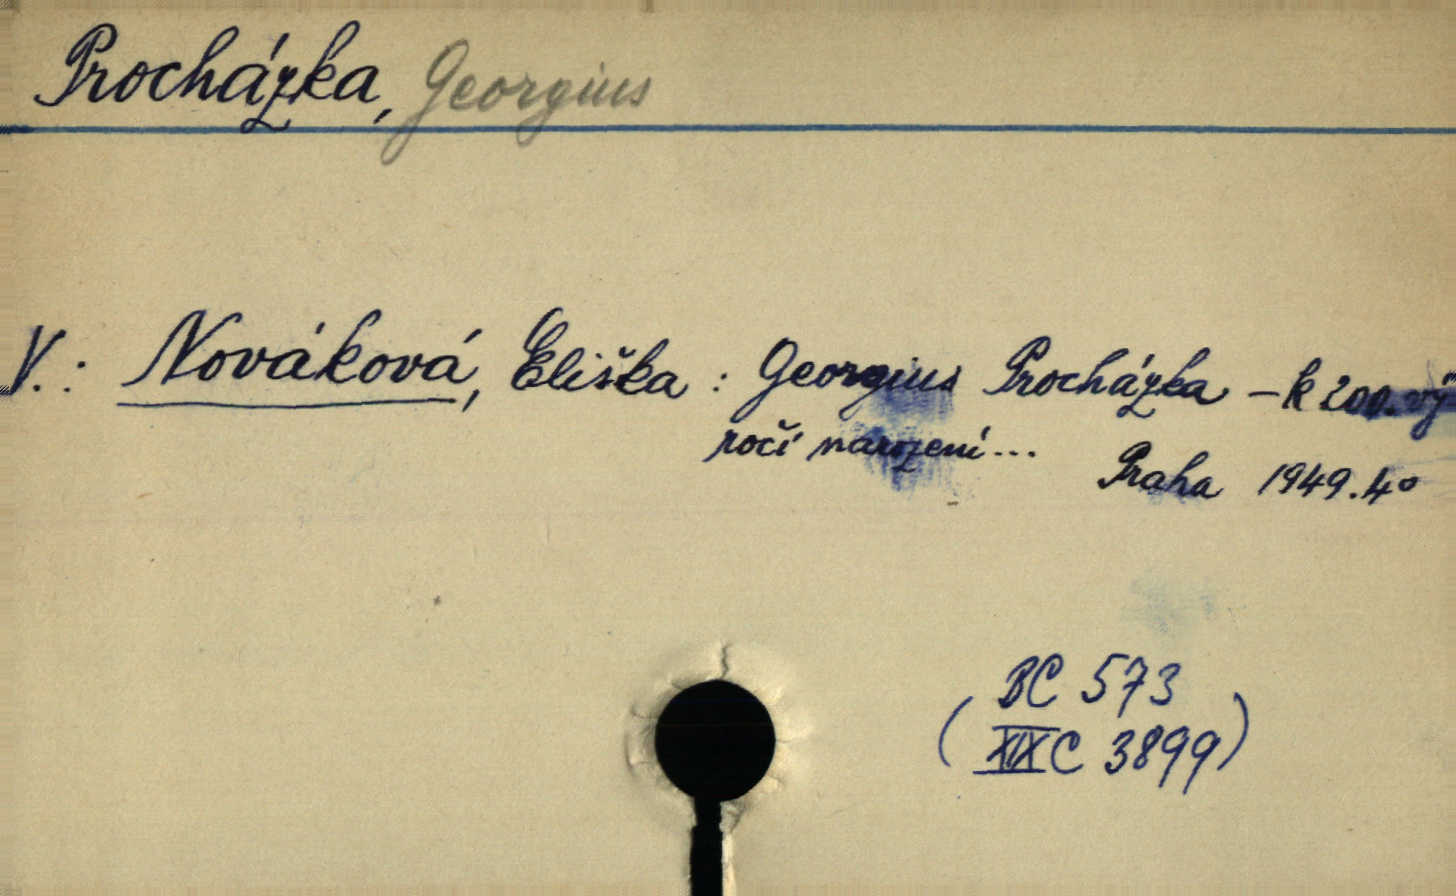 Procházka, Georgius
V.: Nováková, Eliška: Georgius Procházka – k 200. vý
ročí narození...
Praha 1949. 4°
BC 573
(XIXC 3899)